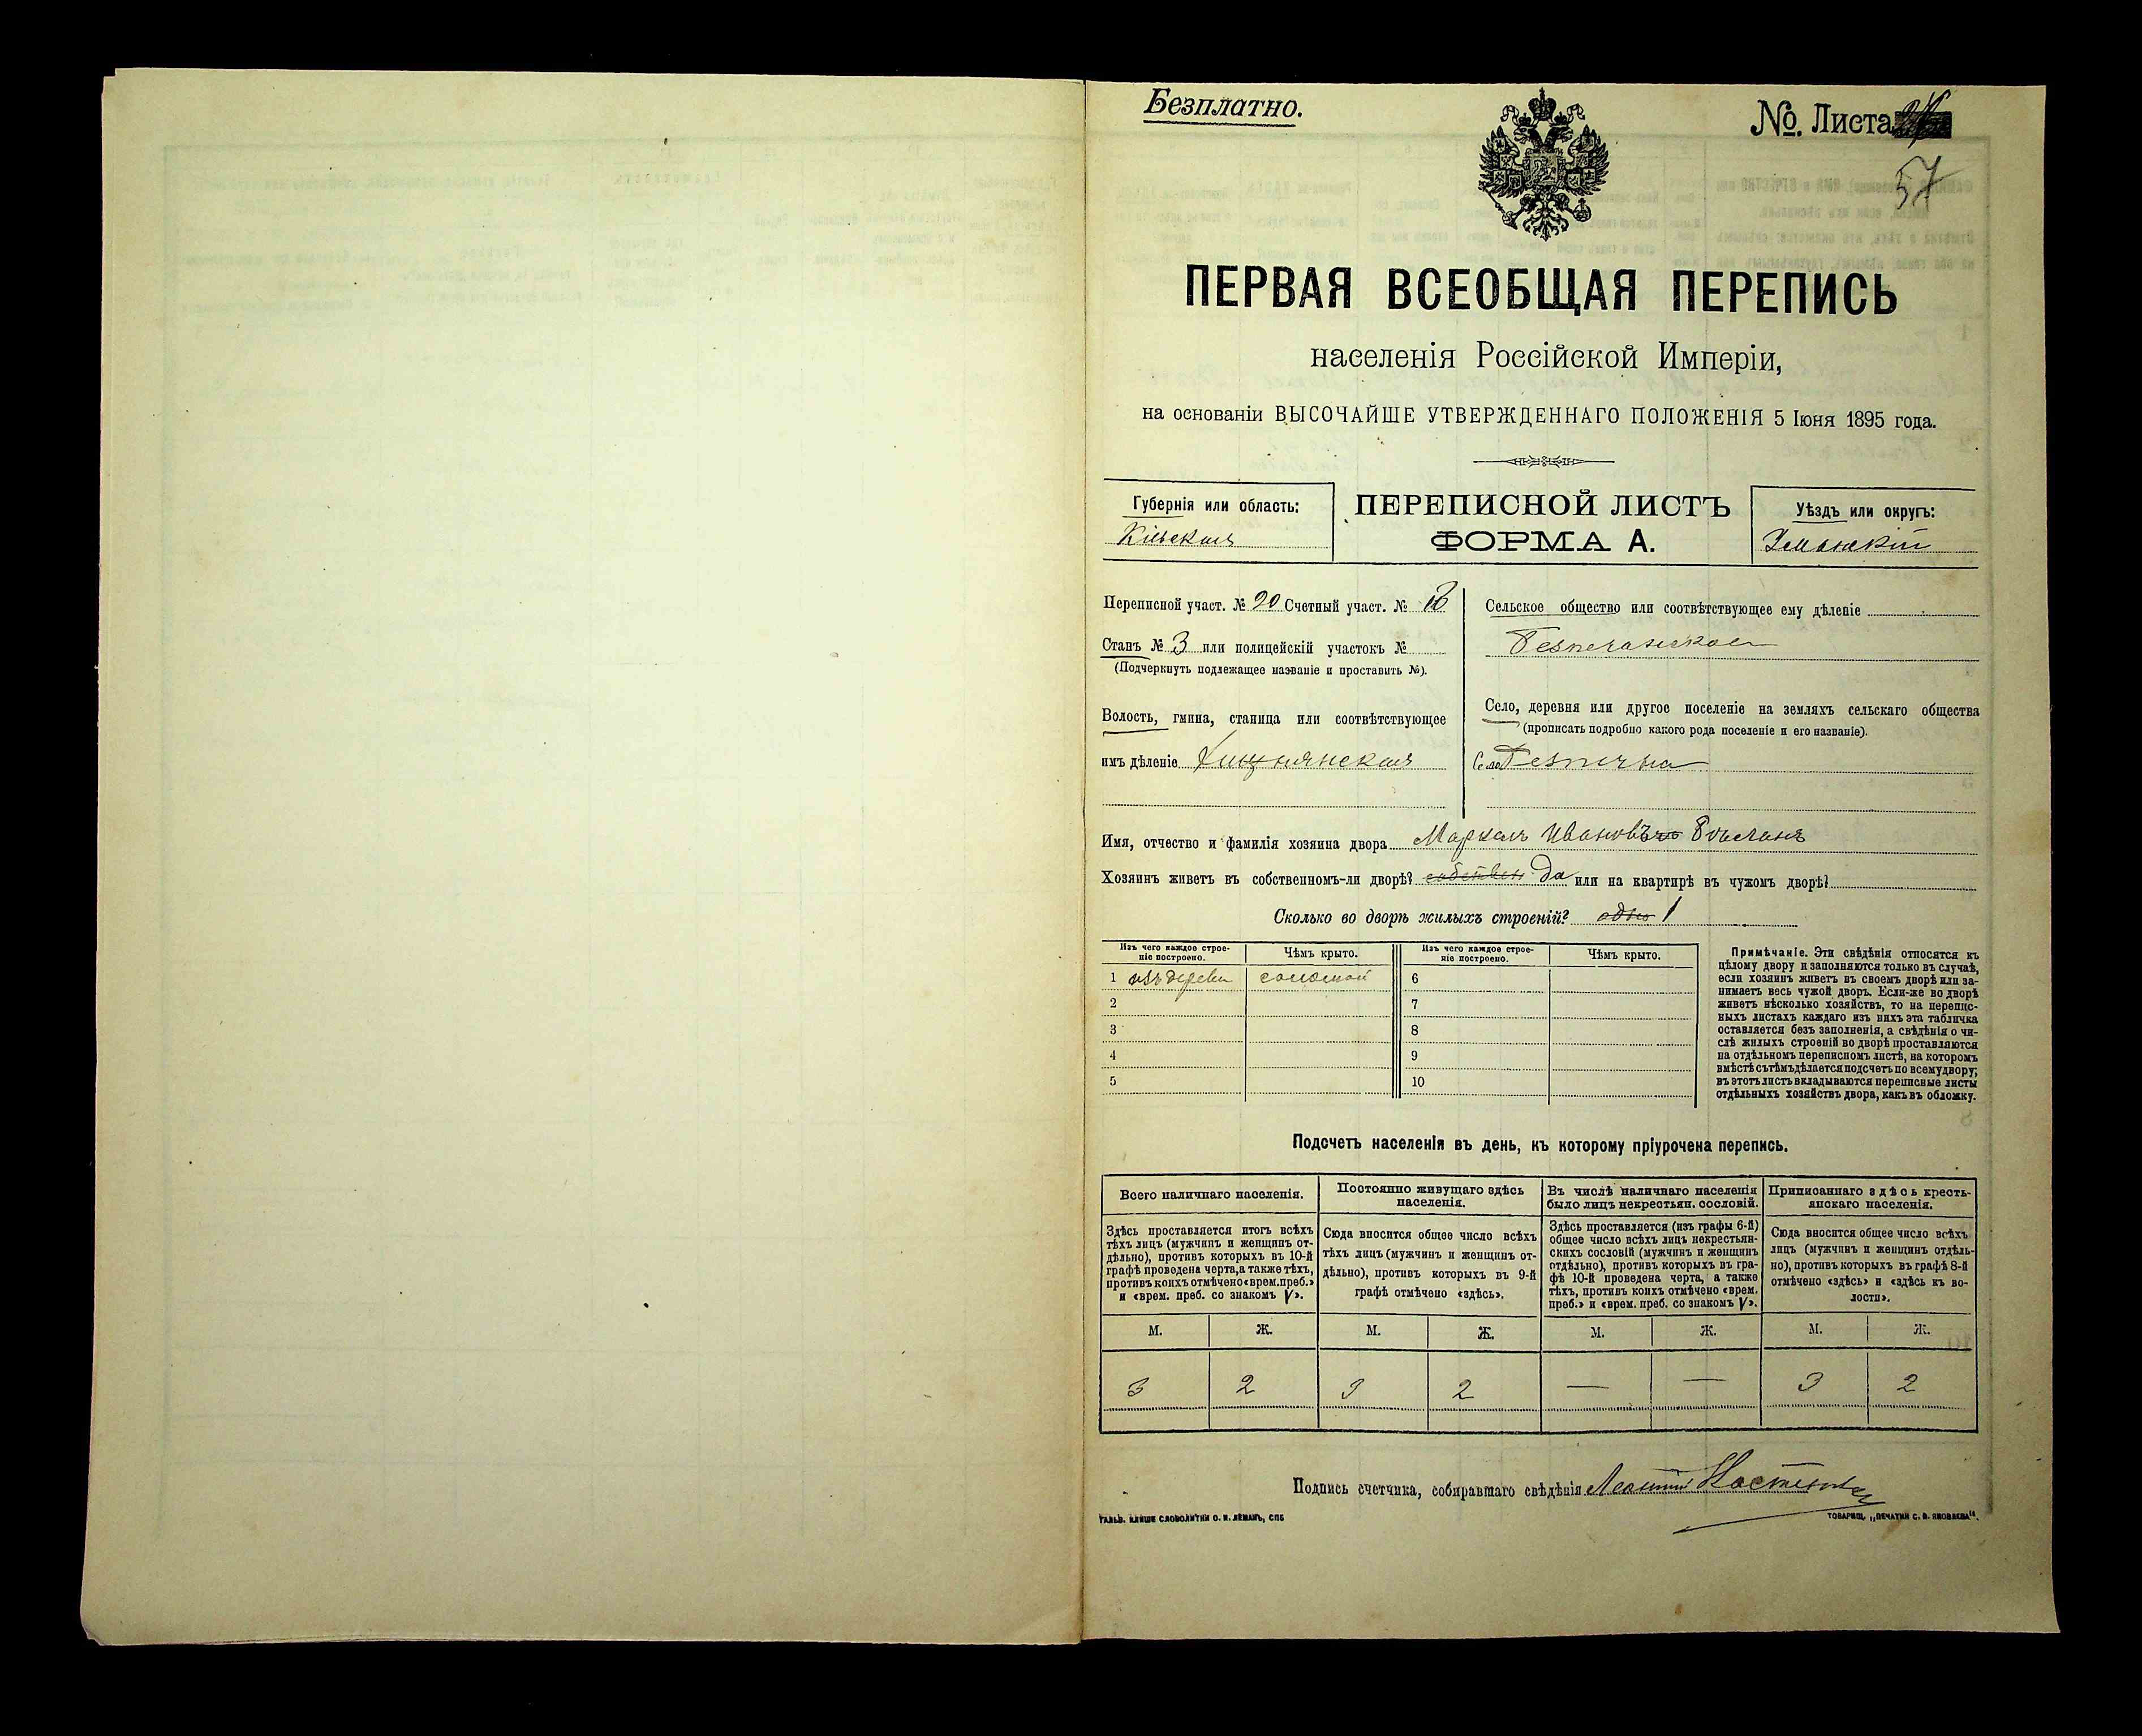 Безплатно.
№. Листа
57
ПЕРВАЯ ВСЕОБЩАЯ ПЕРЕПИСЬ
населенія Россійской Имперіи,
на основаніи ВЫСОЧАЙШЕ УТВЕРЖДЕННАГО ПОЛОЖЕНІЯ 5 Іюня 1895 года.
Губернія или область:
Кіевская
ПЕРЕПИСНОЙ ЛИСТЪ
ФОРМА А.
Уѣздъ или округъ:
Уманскій
Переписной участ. № 20 Счетный участ. №
Станъ № 3 или полицейскій участокъ №
(Подчеркнуть подлежащее названіе и проставить №).
Волость, гмина, станица или соотвѣтствующее
имъ дѣленіе
Сельское общество или соотвѣтствующее ему дѣленіе
Село, деревня или другое поселеніе на земляхъ сельскаго общества
(прописать подробно какого рода поселеніе и его названіе).
Село
Имя, отчество и фамилія хозяина двора Ивановъ
Хозяинъ живетъ въ собственномъ-ли дворѣ? да или на квартирѣ въ чужомъ дворѣ?
Сколько во дворѣ жилыхъ строеній? одно 1
Изъ чего каждое строе-
ніе построено.
Чѣмъ крыто.
1 изъ дерева соломой
2
3
4
5
Изъ чего каждое строе-
ніе построено.
Чѣмъ крыто.
6
7
8
9
10
Примѣчаніе. Эти свѣдѣнія относятся къ
цѣлому двору и заполняются только въ случаѣ,
если хозяинъ живетъ въ своемъ дворѣ или за-
нимаетъ весь чужой дворъ. Если-же во дворѣ
живетъ нѣсколько хозяйствъ, то на перепис-
ныхъ листахъ каждаго изъ нихъ эта табличка
оставляется безъ заполненія, а свѣдѣнія о чи-
слѣ жилыхъ строеній во дворѣ проставляются
на отдѣльномъ переписномъ листѣ, на которомъ
вмѣстѣ съ тѣмъ дѣлается подсчетъ по всему двору;
въ этотъ листъ вкладываются переписные листы
отдѣльныхъ хозяйствъ двора, какъ въ обложку.
Подсчетъ населенія въ день, къ которому пріурочена перепись.
Всего наличнаго населенія.
Здѣсь проставляется итогъ всѣхъ
тѣхъ лицъ (мужчинъ и женщинъ от-
дѣльно), противъ которыхъ въ 10-й
графѣ проведена черта, а также тѣхъ,
противъ коихъ отмѣчено «врем. преб.»
и «врем. преб. со знакомъ V».
Постоянно живущаго здѣсь
населенія.
Сюда вносится общее число всѣхъ
тѣхъ лицъ (мужчинъ и женщинъ от-
дѣльно), противъ которыхъ въ 9-й
графѣ отмѣчено «здѣсь».
Въ числѣ наличнаго населенія
было лицъ некрестьян. сословій.
Здѣсь проставляется (изъ графы 6-й)
общее число всѣхъ лицъ некрестьян-
скихъ сословій (мужчинъ и женщинъ
отдѣльно), противъ которыхъ въ гра-
фѣ 10-й проведена черта, а также
тѣхъ, противъ коихъ отмѣчено «врем.
преб.» и «врем. преб. со знакомъ V».
Приписаннаго здѣсь кресть-
янскаго населенія.
Сюда вносится общее число всѣхъ
лицъ (мужчинъ и женщинъ отдѣль-
но), противъ которыхъ въ графѣ 8-й
отмѣчено «здѣсь» и «здѣсь къ во-
лости».
М. Ж. М. Ж. М. Ж. М. Ж.
3 2 3 2 — — 3 2
Подпись счетчика, собиравшаго свѣдѣнія
ГАЛЬВ. КЛИШЕ СЛОВОЛИТНИ О. И. ЛЕМАНЪ, СПБ
ТОВАРИЩ. „ПЕЧАТНИ С. П. ЯКОВЛЕВА".